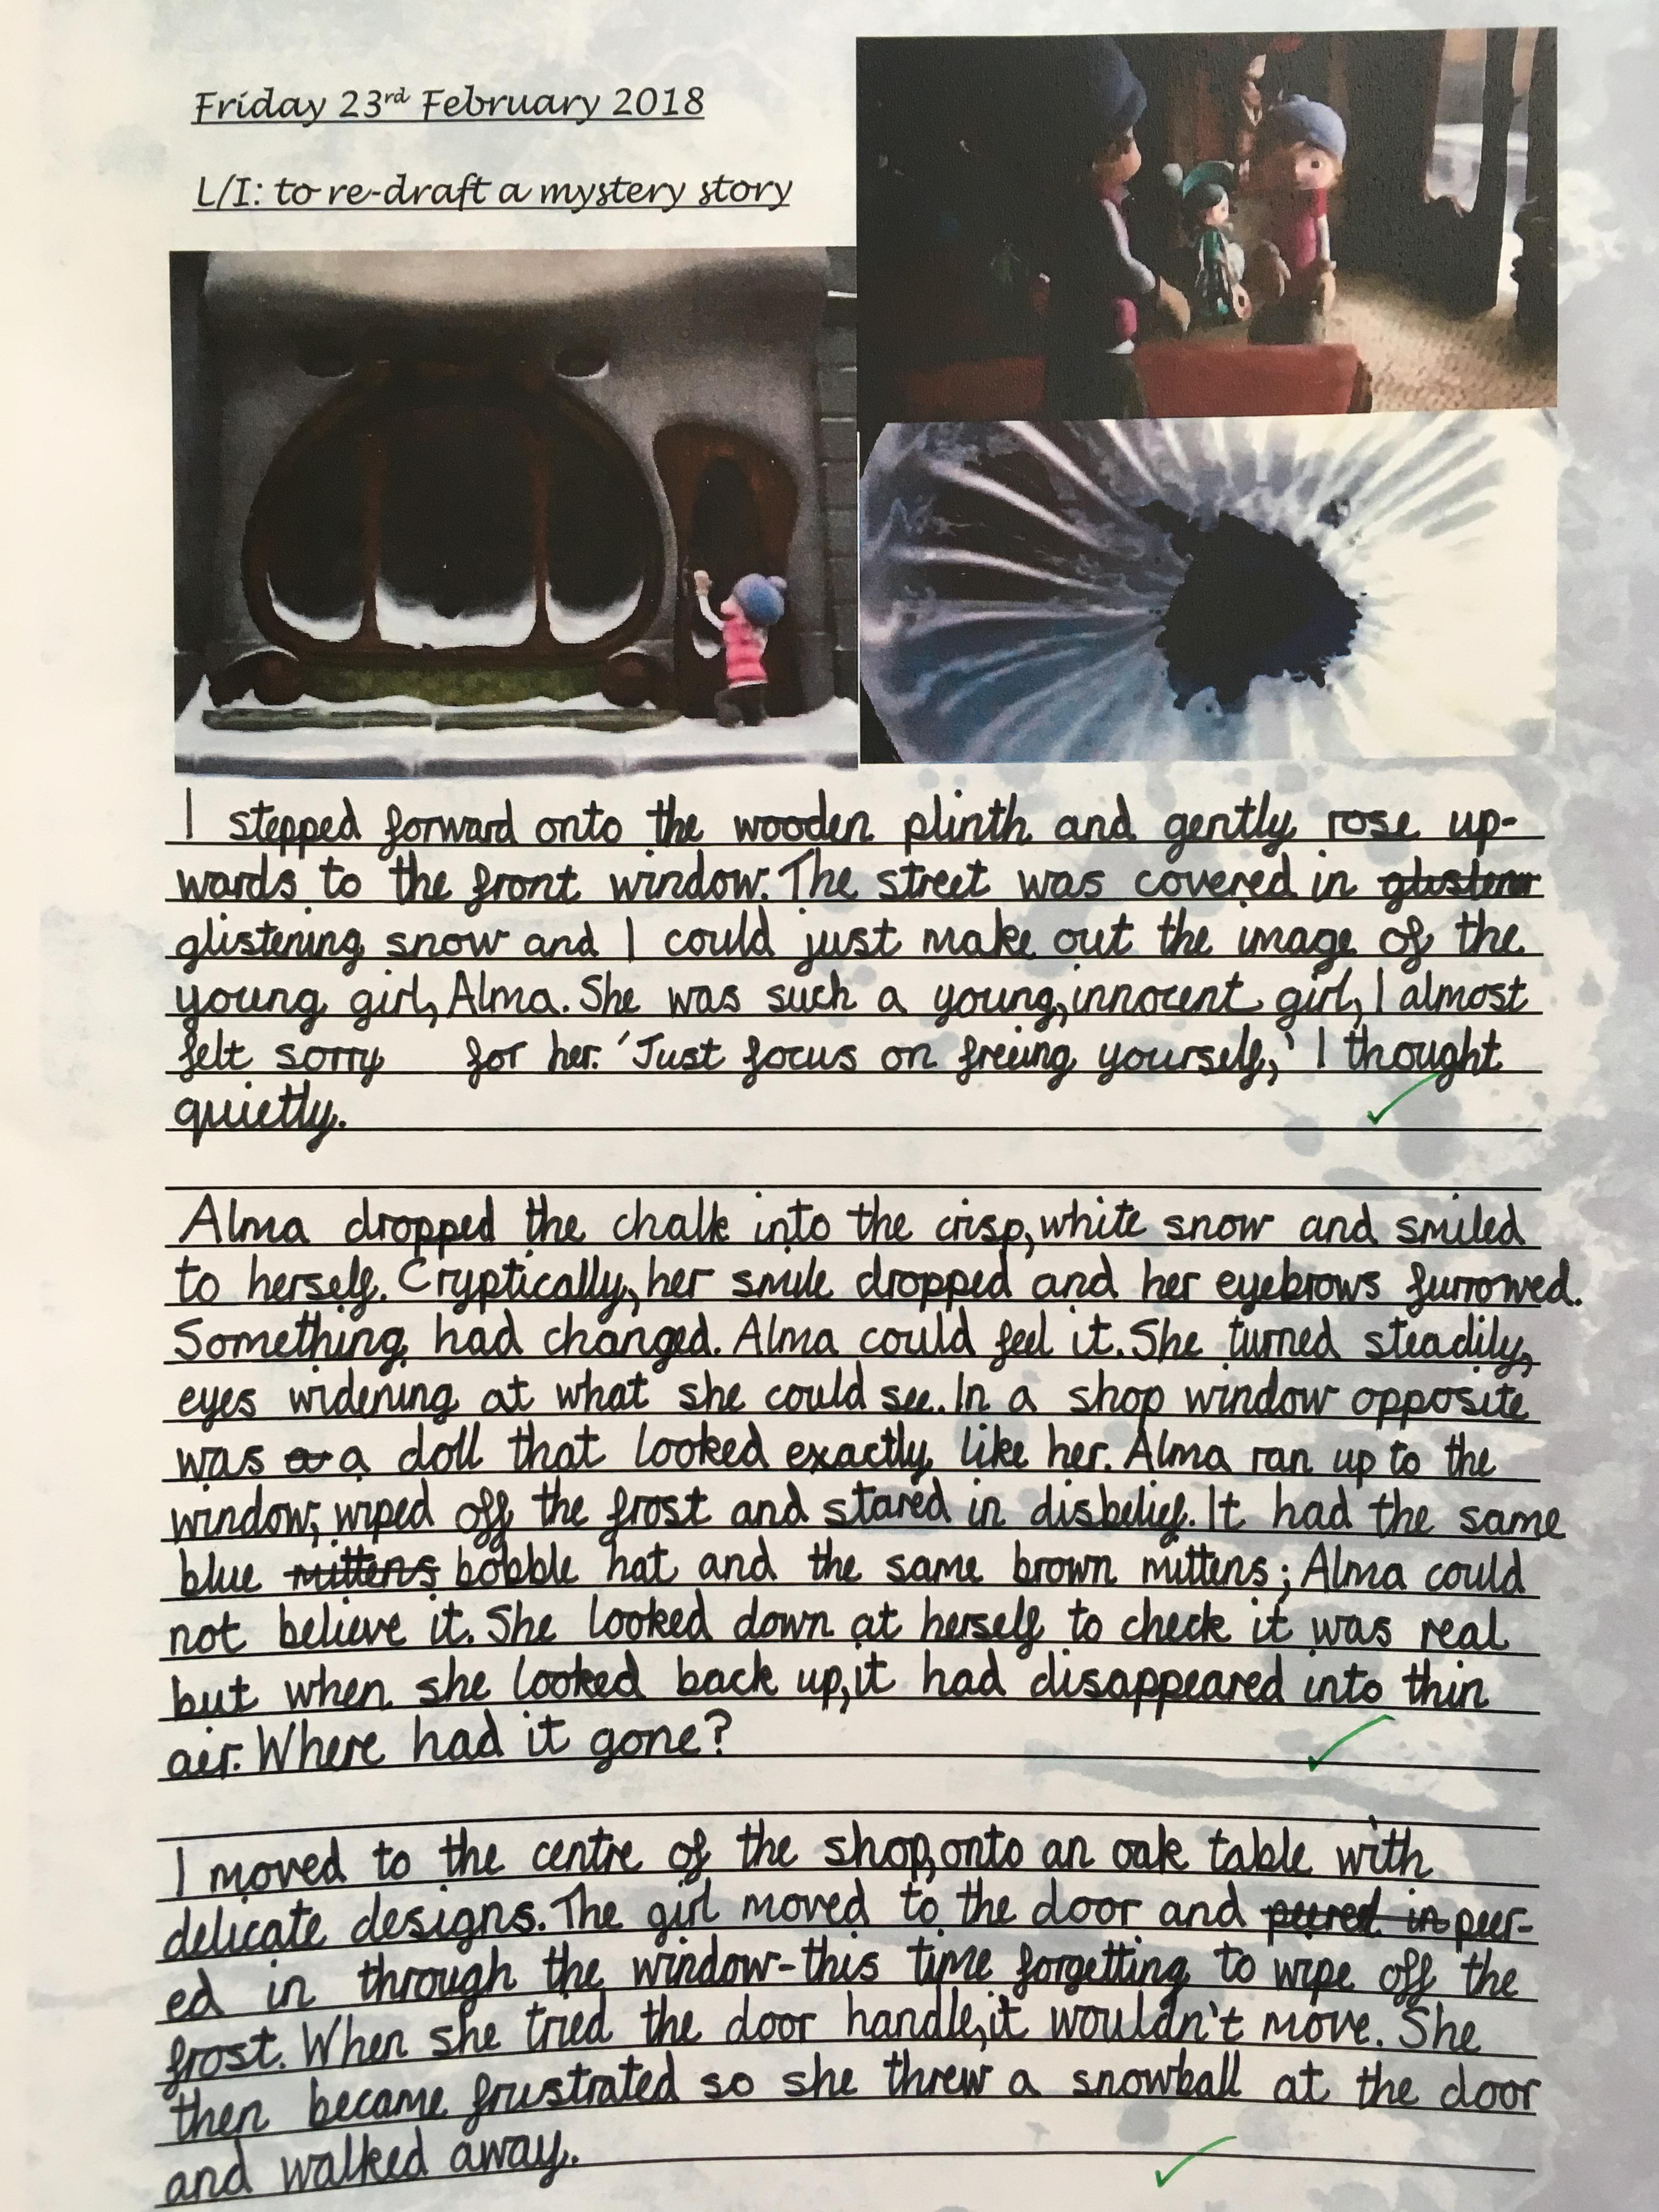 Friday 23rd February 2018
L/I: to re-draft a mystery story
I stepped forward onto the wooden plinth and gently rose up-
wards to the front window. The street was covered in glistener
glistening snow and I could just make out the image of the
young girl, Alma. She was such a young, innocent girl, I almost
felt sorry for her. 'Just focus on freeing yourself,' I thought
quietly.
Alma dropped the chalk into the crisp, white snow and smiled
to herself. Cryptically, her smile dropped and her eyebrows furrowed.
Something had changed. Alma could feel it. She turned steadily,
eyes widening at what she could see. In a shop window opposite
was a a doll that looked exactly like her. Alma ran up to the
window; wiped off the frost and stared in disbelief. It had the same
blue mittens bobble hat and the same brown mittens; Alma could
not believe it. She looked down at herself to check it was real
but when she looked back up, it had disappeared into thin
air. Where had it gone?
I moved to the centre of the shop, onto an oak table with
delicate designs. The girl moved to the door and peered in peer-
ed in through the window-this time forgetting to wipe off the
frost. When she tried the door handle, it wouldn't move. She
then became frustrated so she threw a snowball at the door
and walked away.